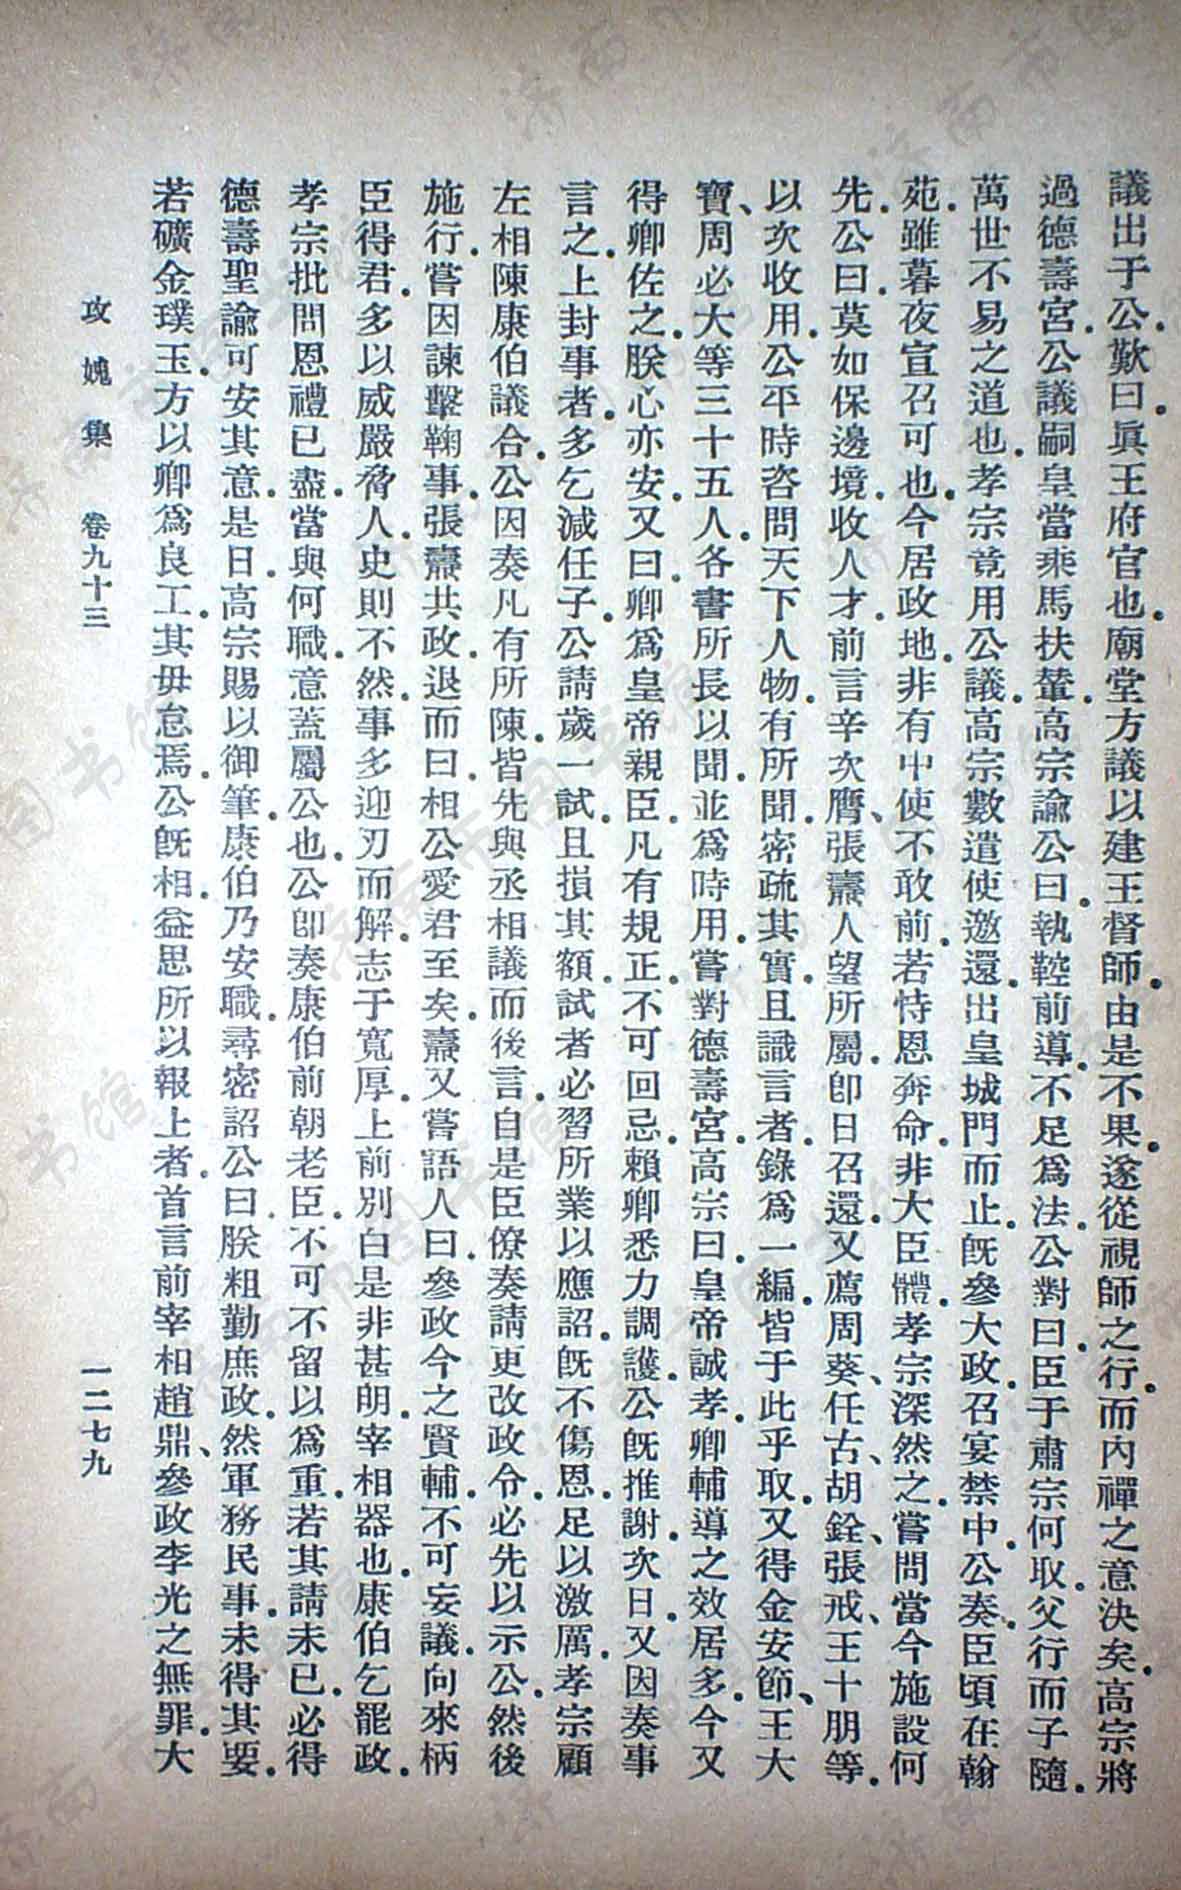 議出于公歎曰眞王府官也廟堂方議以建王督師由是不果遂從視師之行而內禪之意決矣高宗將
過德壽宮公議嗣皇當乘馬扶輦高宗諭公曰執鞚前導不足爲法公對曰臣于肅宗何取父行而子隨
萬世不易之道也孝宗竟用公議高宗數遣使邀還出皇城門而止既參大政召宴禁中公奏臣頃在翰
苑雖暮夜宣召可也今居政地非有中使不敢前若恃恩奔命非大臣體孝宗深然之嘗問當今施設何
先公曰莫如保邊境收人才前言辛次膺、張燾人望所屬卽日召還又薦周葵、任古、胡銓、張戒、王十朋等
以次收用公平時咨問天下人物有所聞密疏其實且識言者錄爲一編皆于此乎取又得金安節、王大
寶、周必大等三十五人各書所長以聞並爲時用嘗對德壽宮高宗曰皇帝誠孝卿輔導之效居多今又
得卿佐之朕心亦安又曰卿爲皇帝親臣凡有規正不可回忌賴卿悉力調護公既推謝次日又因奏事
言之上封事者多乞減任子公請歲一試且損其額試者必習所業以應詔既不傷恩足以激厲孝宗顧
左相陳康伯議合公因奏凡有所陳皆先與丞相議而後言自是臣僚奏請更改政令必先以示公然後
施行嘗因諫擊鞠事張燾共政退而曰相公愛君至矣燾又嘗語人曰參政今之賢輔不可妄議向來柄
臣得君多以威嚴脅人史則不然事多迎刃而解志于寬厚上前別白是非甚明宰相器也康伯乞罷政
孝宗批問恩禮已盡當與何職意蓋屬公也公卽奏康伯前朝老臣不可不留以爲重若其請未已必得
德壽聖諭可安其意是日高宗賜以御筆康伯乃安職尋密詔公曰朕粗勤庶政然軍務民事未得其要
若礦金璞玉方以卿爲良工其毋怠焉公既相益思所以報上者首言前宰相趙鼎、參政李光之無罪大
攻媿集 卷九十三 一二七九